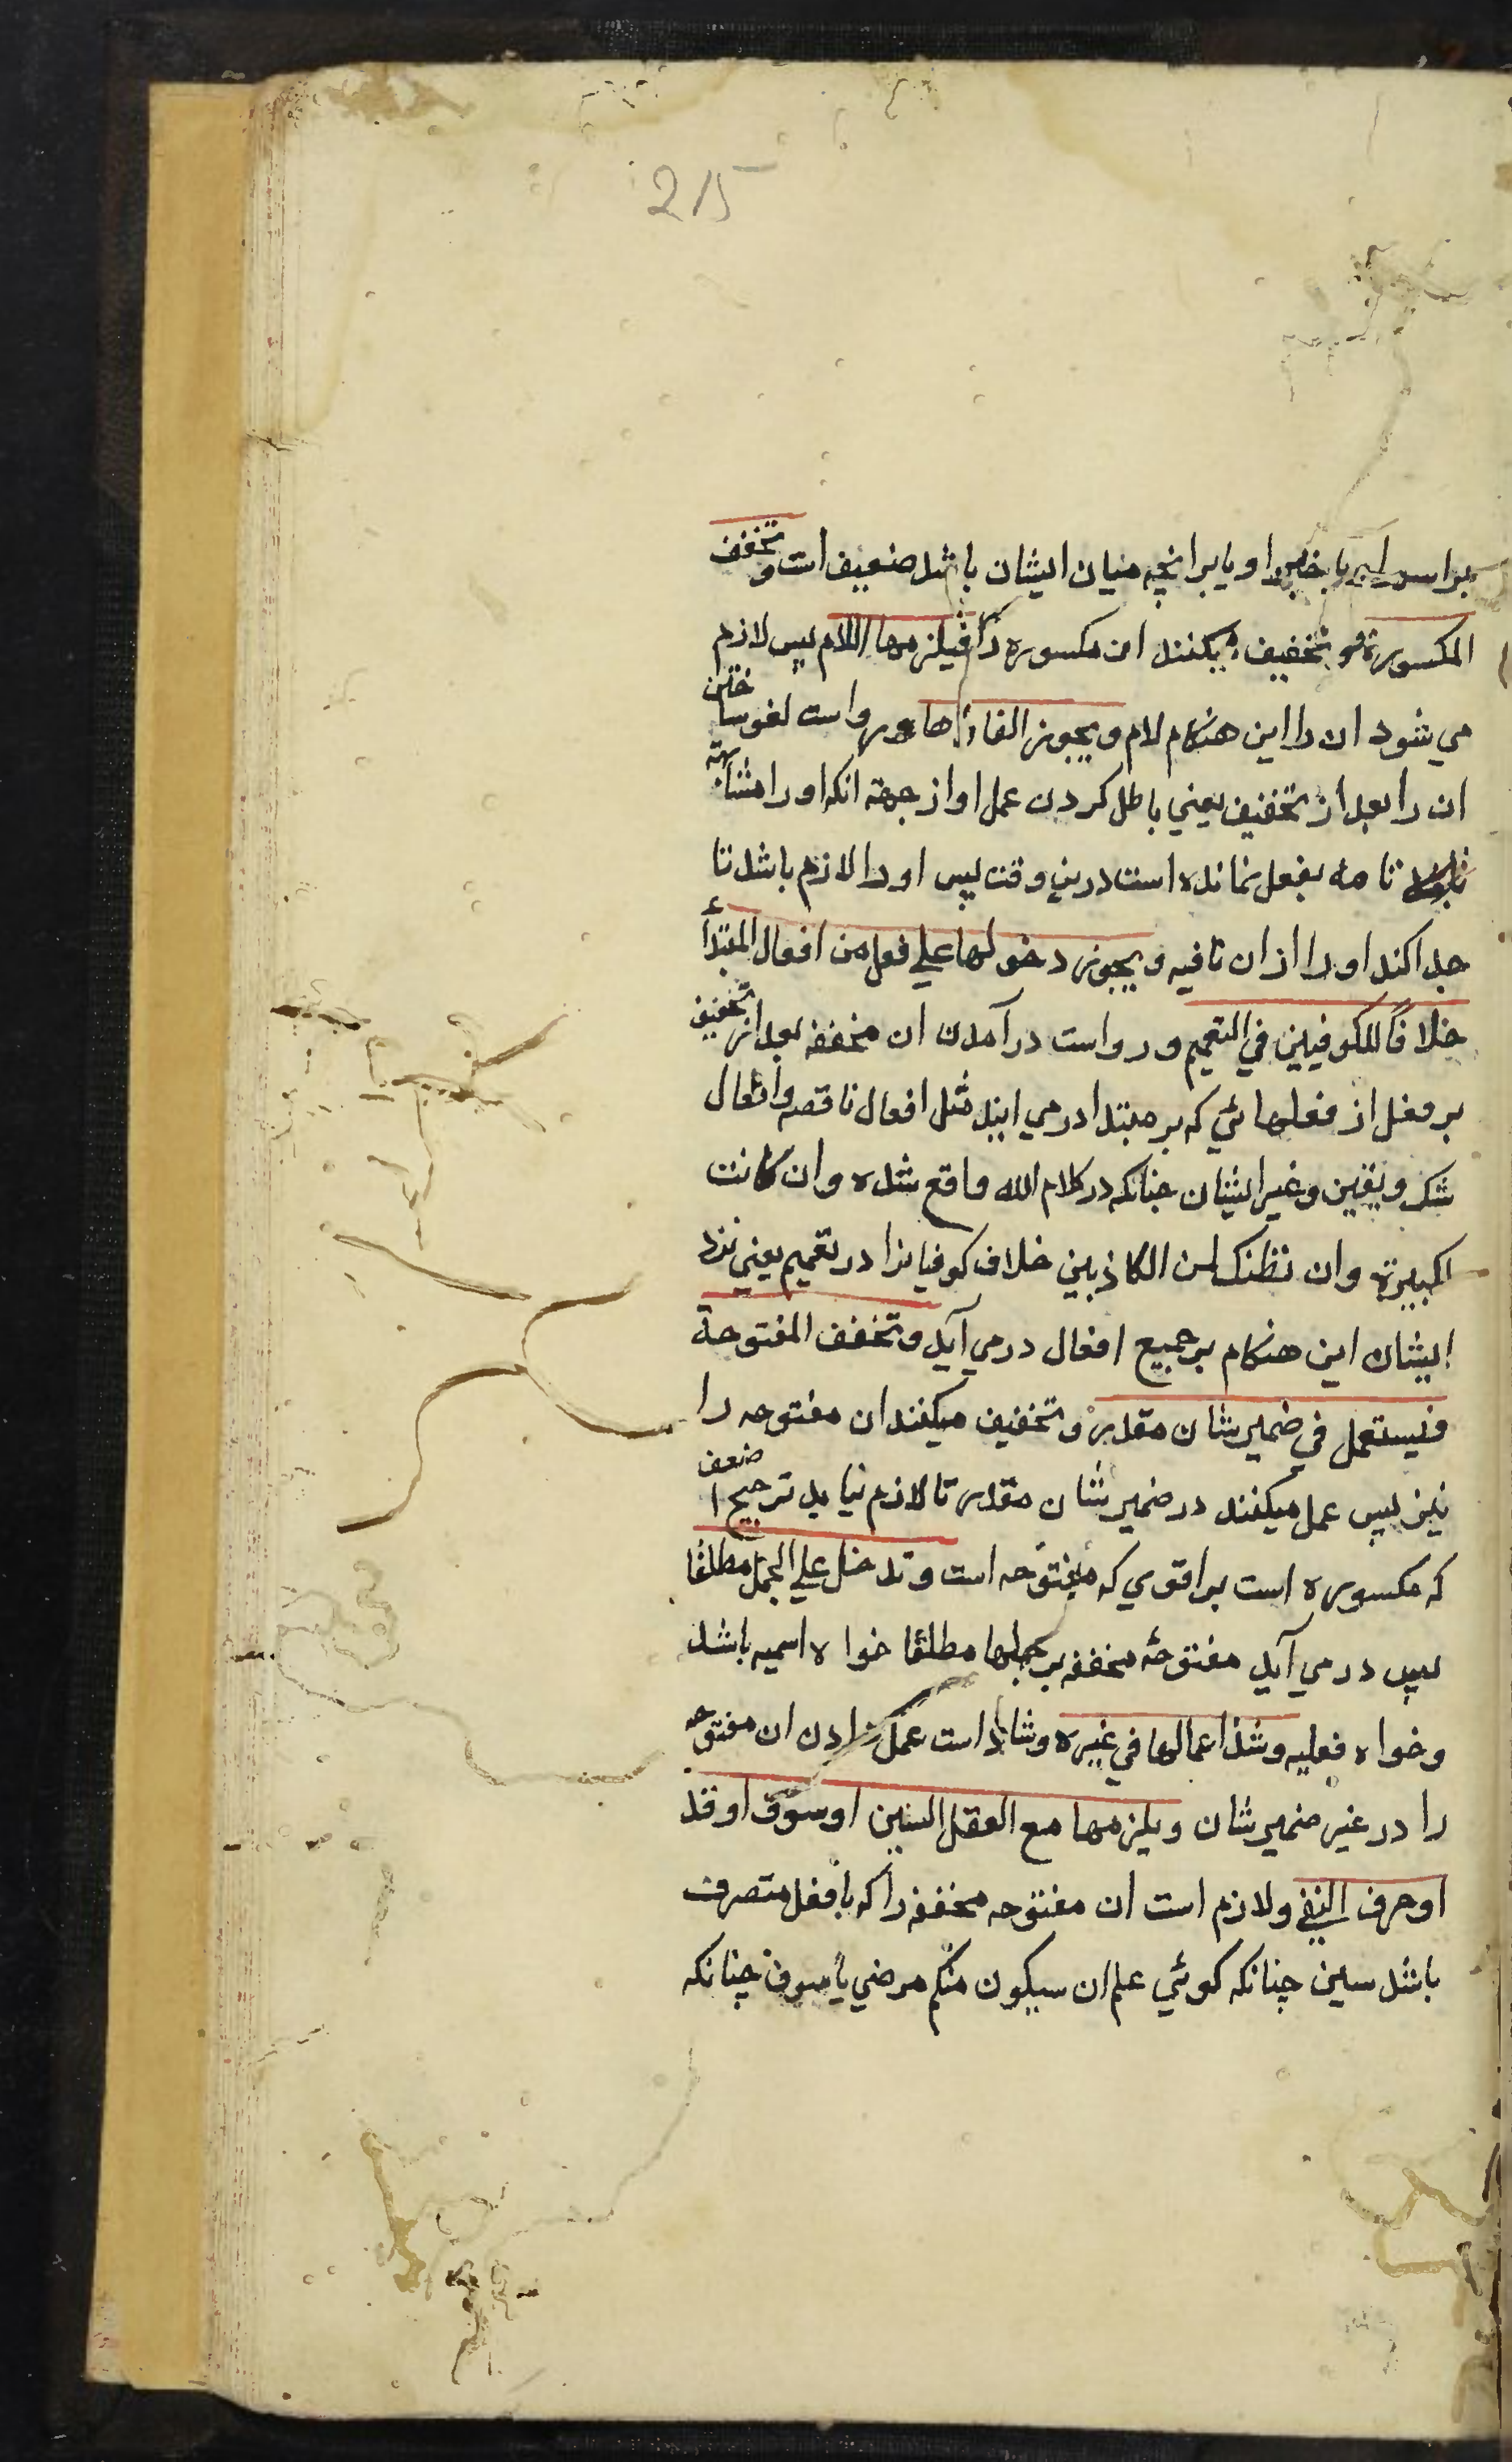 215
بر اسم یا خبر او یا بر آنچه میان ایشان باشد ضعیف است و تخفف
المکسورة و تخفیف میکنند ان مکسوره را فیلزمها اللام پس لازم
می شود ان را این هنکام لام و یجوز الغاؤها و رواست لغو ساختن
ان را بعد از تخفیف یعنی باطل کردن عمل او از جهته انکه او را مشابهته
تامه بفعل نمانده است درین وقت پس او را لازم باشد تا
جدا کند او را از ان نافیه و یجوز دخولها علی فعل من افعال المبتدأ
خلافًا للکوفیین في التعمیم و رواست درآمدن ان مخففه بعد از تخفیف
بر فعل از فعلهائي که بر مبتدا در می ایند مثل افعال ناقصه و افعال
شک و یقین و غیر ایشان چنانکه در کلام الله واقع شده وان کانت
لکبیرة وان نظنک لمن الکاذبین خلاف کوفیانرا در تعمیم یعنی نزد
ایشان این هنکام بر جمیع افعال در می آید و تخفف المفتوحة
فیستعمل في ضمیر شان مقدر و تخفیف میکنند ان مفتوحه را
نیز پس عمل میکنند در ضمیر شان مقدر تا لازم نیاید ترجیح اضعف
که مکسوره است بر اقوی که مفتوحه است و تدخل علی الجمل مطلقا
پس در می آید مفتوحهٔ مخففه بر جملها مطلقا خواه اسمیه باشد
و خواه فعلیه و شذ اعمالها في غیره و شاذ است عمل دادن ان مفتوحه
را در غیر ضمیر شان و یلزمها مع الفعل السین او سوف او قد
او حرف النفي و لازم است ان مفتوحه مخففه را که با فعل متصرف
باشد سین چنانکه کوئي علم ان سیکون منکم مرضی یا سوف چنانکه